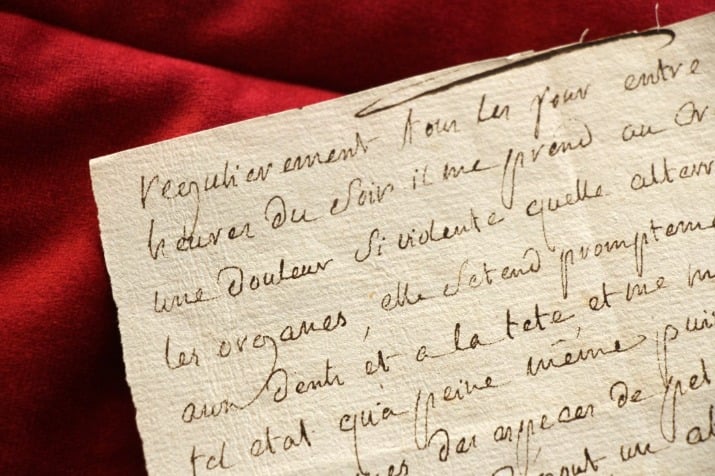 regulierement tour les jour entre
heures du soir il me prend au cr
une douleur si violente quelle alterr
les organes, elle setend prompteme
aux dents et a la tete et me m
tel etat qu'a peine même puis
des especes de pet
un al